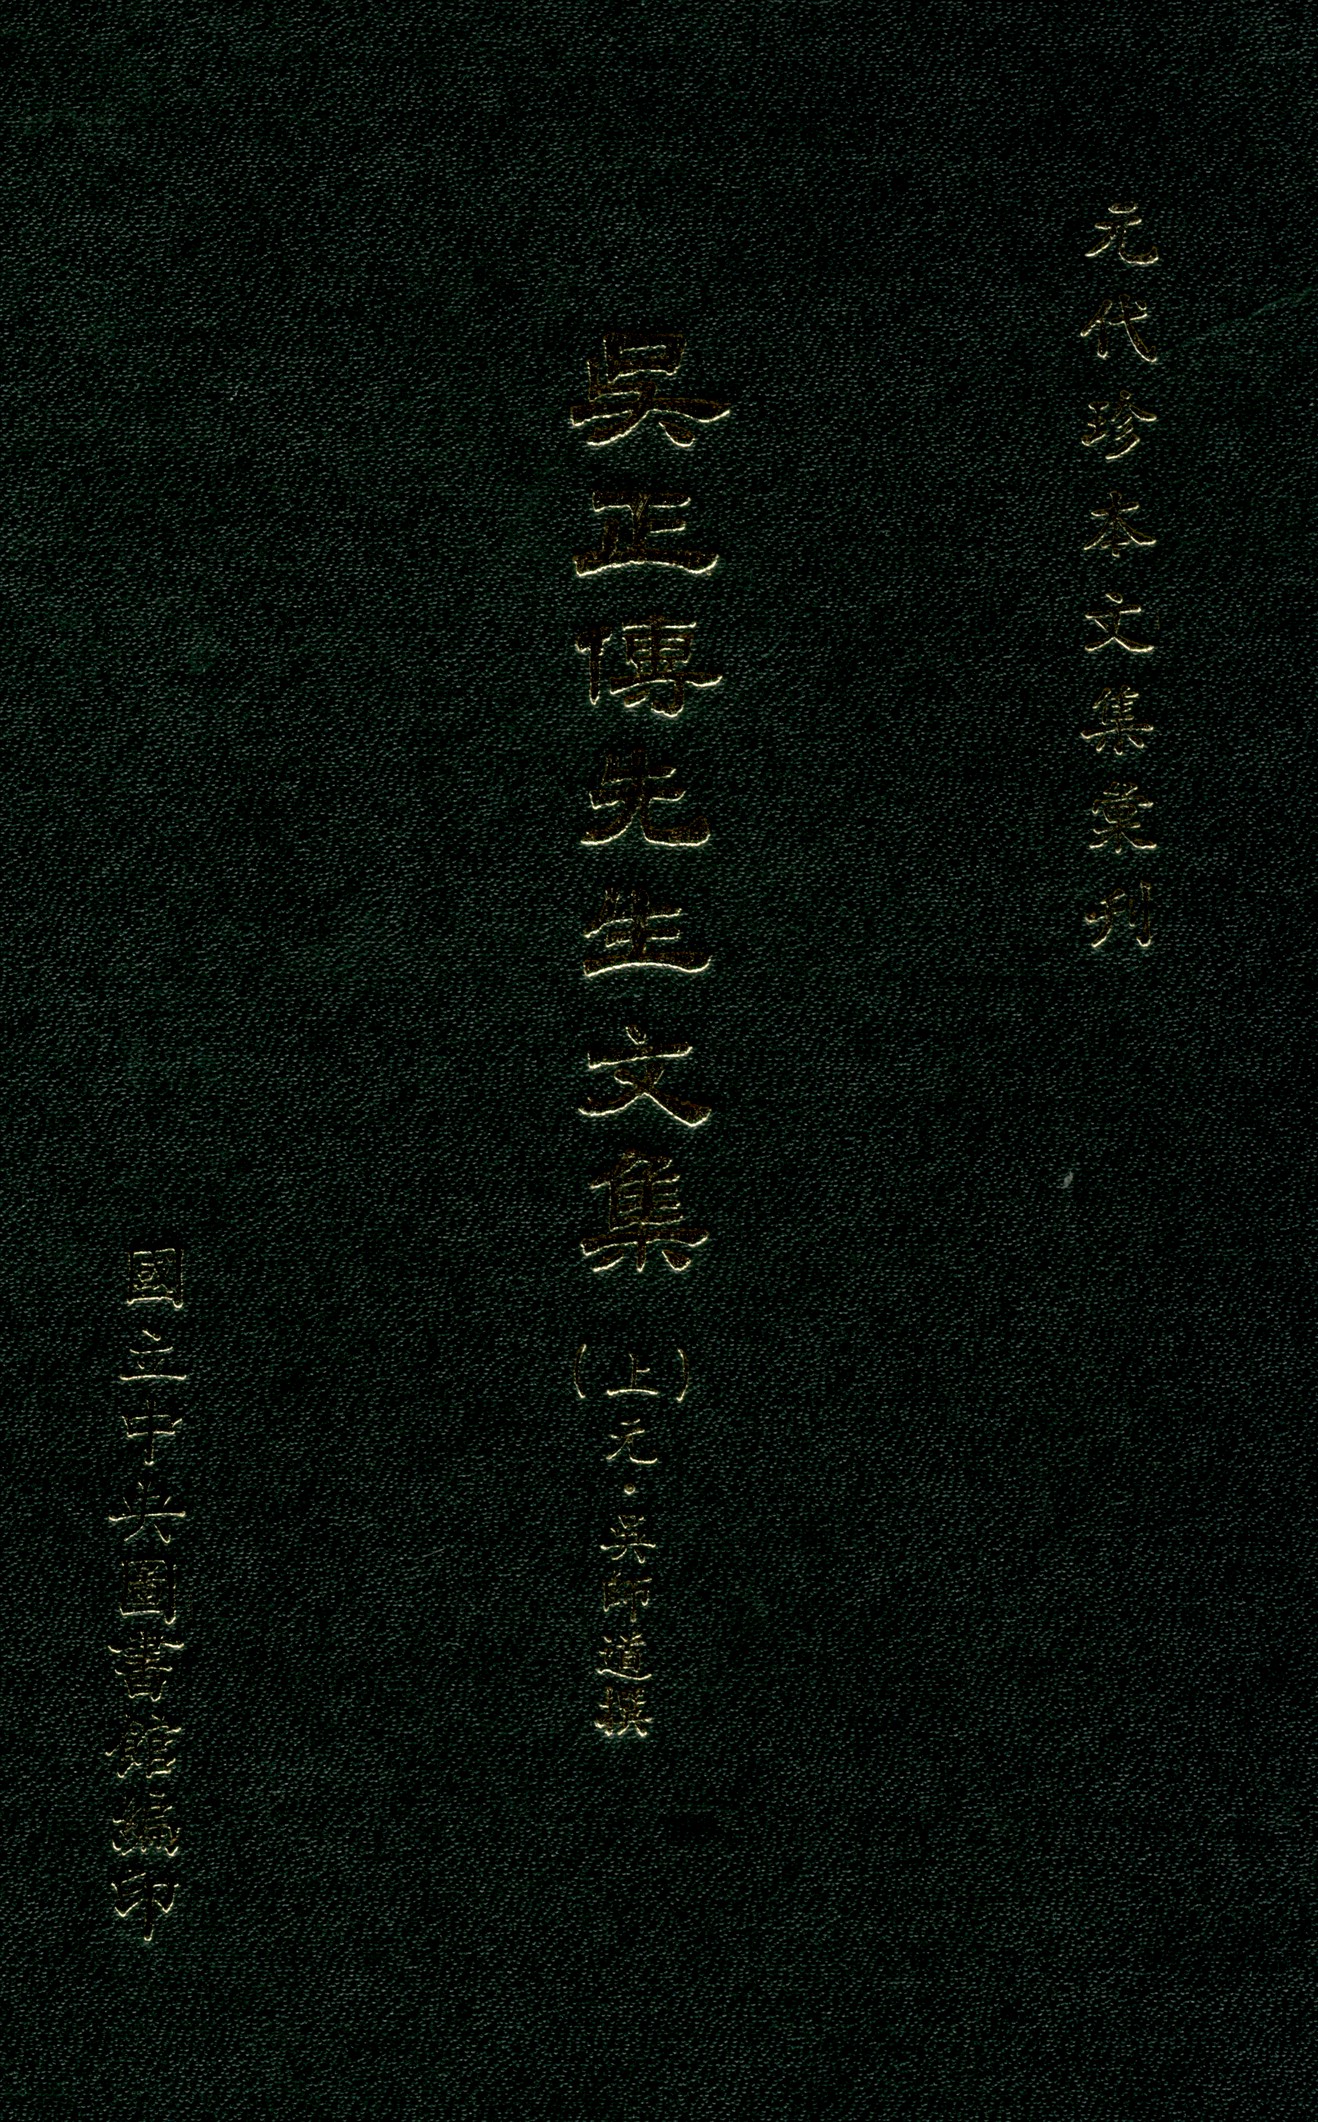 元代珍本文集彙刊
吳正傳先生文集(上)元·吳師道撰
國立中央圖書館編印